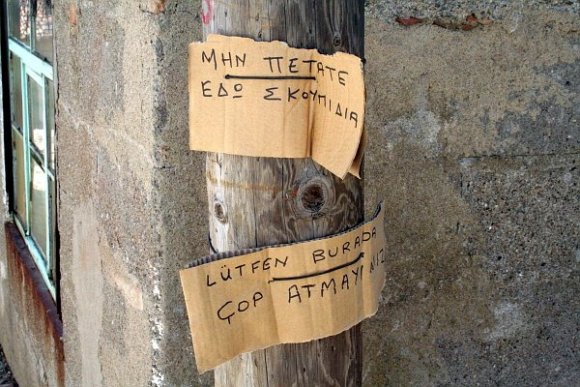 ΜΗΝ ΠΕΤΑΤΕ
ΕΔΩ ΣΚΟΥΠΙΔΙΑ
LÜTFEN BURADA
ÇOP ATMAYINIZ